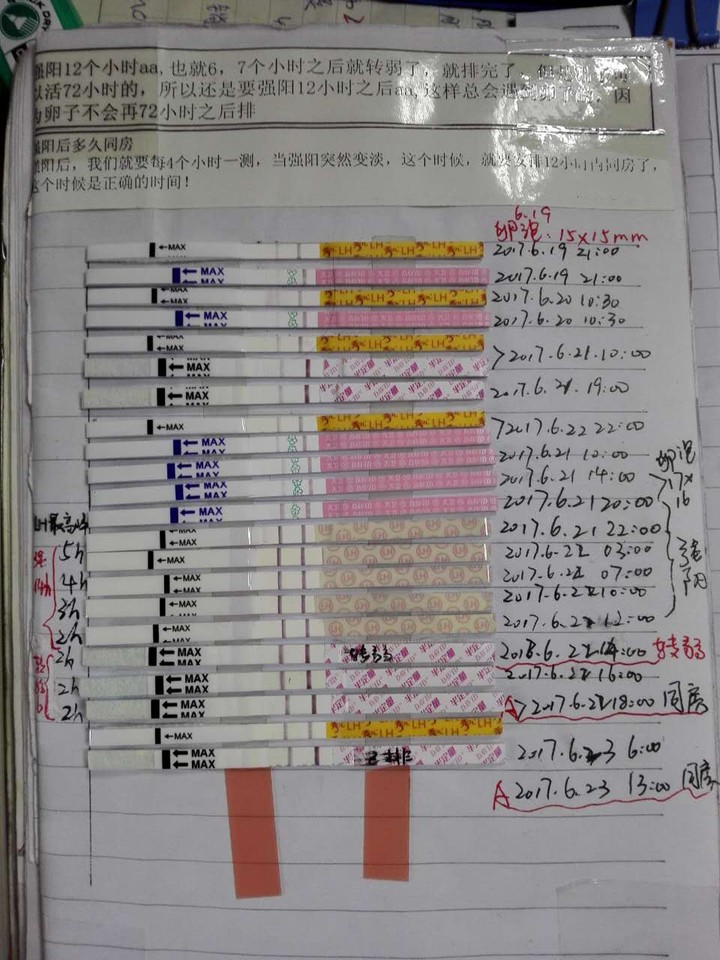 强阳12个小时aa,也就6，7个小时之后就转弱了，就排完了，但是
以活72小时的，所以还是要强阳12小时之后aa,这样总会遇到卵子的，因
为卵子不会再72小时之后排
强阳后多久同房
强阳后，我们就要每4个小时一测，当强阳突然变淡，这个时候，就要安排12小时内同房了，
这个时候是正确的时间！
6.19
卵泡：15×15mm
MAX 2017.6.19 21:00
MAX 2017.6.19 21:00
MAX 2017.6.20 10:30
MAX 2017.6.20 10:30
MAX
MAX 2017.6.21.10:00
MAX 2017.6.21.19:00
MAX 2017.6.22 22:00
MAX 2017.6.21 10:00
MAX 2017.6.21 14:00
MAX 2017.6.21 20:00
卵泡
17×
16
强
阳
MAX 2017.6.21 22:00
5h MAX 2017.6.22 03:00
4h MAX 2017.6.22 07:00
3h MAX 2017.6.22 10:00
2h MAX 2017.6.22 12:00
强
14h
2h MAX 转弱 2018.6.22 14:00 转弱
2h MAX 2017.6.22 16:00
2h MAX A 2017.6.22 18:00 同房
MAX
MAX 已排 2017.6.23 6:00
A 2017.6.23 13:00 同房